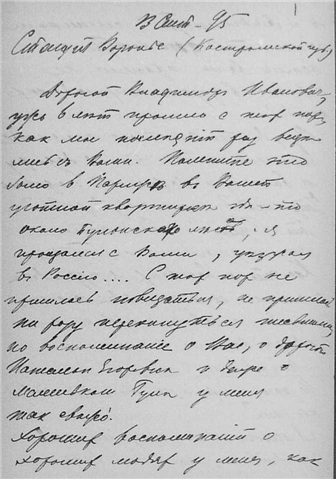 3 Сент. - 95
Станция Воронье (Костромской губ)
Дорогой Владимир Иванович,
уже 6 лет прошло с тех пор,
как мы последний раз виде
лись с Вами. Помните это
было в Париже в Вашей
уютной квартирке где-то
около Булонского леса, я
прощался с Вами, уезжая
в Россию.... С тех пор не
пришлось повидаться, не пришлось
ни разу перекинуться письмами,
но воспоминание о Вас, о дорогой
Наталье Егоровне и о
маленьком Гуле у меня
так свежо.
Хорошие воспоминания о
хороших людях у меня, как